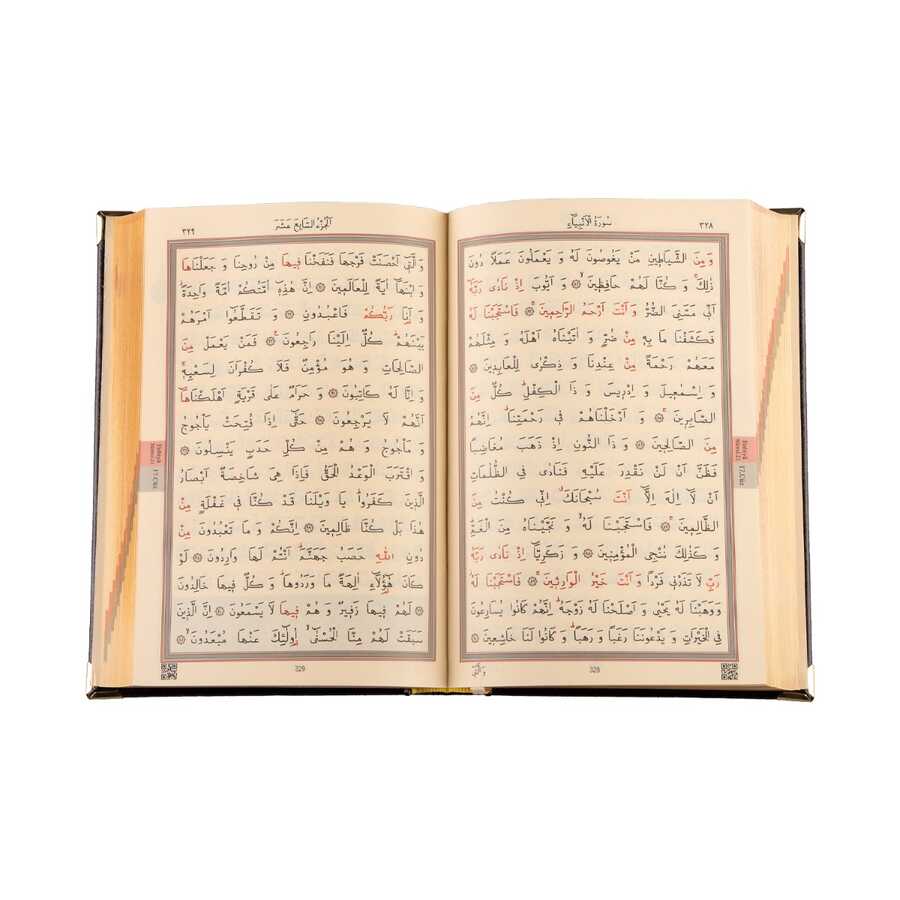 ٣٢٨
سُورَةُ الْاَنْبِيَاءِ
وَ مِنَ الشَّيَاطِينِ مَنْ يَغُوصُونَ لَهُ وَ يَعْمَلُونَ عَمَلًا دُونَ
ذٰلِكَ ۚ وَ كُنَّا لَهُمْ حَافِظِينَ ۙ وَ اَيُّوبَ اِذْ نَادٰى رَبَّهُٓ
اَنّٖى مَسَّنِىَ الضُّرُّ وَ اَنْتَ اَرْحَمُ الرَّاحِمِينَ ۚ فَاسْتَجَبْنَا لَهُ
فَكَشَفْنَا مَا بِهٖ مِنْ ضُرٍّ وَ اٰتَيْنَاهُ اَهْلَهُ وَ مِثْلَهُمْ
مَعَهُمْ رَحْمَةً مِنْ عِنْدِنَا وَ ذِكْرٰى لِلْعَابِدِينَ
وَ اِسْمٰعِيلَ وَ اِدْرِيسَ وَ ذَا الْكِفْلِ ۖ كُلٌّ مِنَ
الصَّابِرِينَ ۚ وَ اَدْخَلْنَاهُمْ فٖى رَحْمَتِنَا ۖ اِنَّهُمْ
مِنَ الصَّالِحِينَ وَ ذَا النُّونِ اِذْ ذَهَبَ مُغَاضِبًا
فَظَنَّ اَنْ لَنْ نَقْدِرَ عَلَيْهِ فَنَادٰى فِى الظُّلُمَاتِ
اَنْ لَٓا اِلٰهَ اِلَّٓا اَنْتَ سُبْحَانَكَ ۖ اِنّٖى كُنْتُ مِنَ
الظَّالِمِينَ ۚ فَاسْتَجَبْنَا لَهُ ۙ وَ نَجَّيْنَاهُ مِنَ الْغَمِّ ۖ
وَ كَذٰلِكَ نُنْجِى الْمُؤْمِنِينَ وَ زَكَرِيَّٓا اِذْ نَادٰى رَبَّهُ
رَبِّ لَا تَذَرْنٖى فَرْدًا وَ اَنْتَ خَيْرُ الْوَارِثِينَ ۚ فَاسْتَجَبْنَا لَهُ ۘ
وَ وَهَبْنَا لَهُ يَحْيٰى وَ اَصْلَحْنَا لَهُ زَوْجَهُ ۖ اِنَّهُمْ كَانُوا يُسَارِعُونَ
فِى الْخَيْرَاتِ وَ يَدْعُونَنَا رَغَبًا وَ رَهَبًا ۖ وَ كَانُوا لَنَا خَاشِعِينَ
328
وَ الَّتٖٓى
اَلْجُزْءُ السَّابِعَ عَشَرَ
٣٢٩
وَ الَّتٖٓى اَحْصَنَتْ فَرْجَهَا فَنَفَخْنَا فِيهَا مِنْ رُوحِنَا وَ جَعَلْنَاهَا
وَ ابْنَهَٓا اٰيَةً لِلْعَالَمِينَ اِنَّ هٰذِهٖٓ اُمَّتُكُمْ اُمَّةً وَاحِدَةً ۘ
وَ اَنَا رَبُّكُمْ فَاعْبُدُونِ وَ تَقَطَّعُٓوا اَمْرَهُمْ
بَيْنَهُمْ ۖ كُلٌّ اِلَيْنَا رَاجِعُونَ ۚ فَمَنْ يَعْمَلْ مِنَ
الصَّالِحَاتِ وَ هُوَ مُؤْمِنٌ فَلَا كُفْرَانَ لِسَعْيِهٖ ۚ
وَ اِنَّا لَهُ كَاتِبُونَ وَ حَرَامٌ عَلٰى قَرْيَةٍ اَهْلَكْنَاهَٓا
اَنَّهُمْ لَا يَرْجِعُونَ حَتّٰٓى اِذَا فُتِحَتْ يَاْجُوجُ
وَ مَاْجُوجُ وَ هُمْ مِنْ كُلِّ حَدَبٍ يَنْسِلُونَ
وَ اقْتَرَبَ الْوَعْدُ الْحَقُّ فَاِذَا هِىَ شَاخِصَةٌ اَبْصَارُ
الَّذِينَ كَفَرُوا ۖ يَا وَيْلَنَا قَدْ كُنَّا فٖى غَفْلَةٍ مِنْ
هٰذَا بَلْ كُنَّا ظَالِمِينَ اِنَّكُمْ وَ مَا تَعْبُدُونَ مِنْ
دُونِ اللّٰهِ حَصَبُ جَهَنَّمَ ۖ اَنْتُمْ لَهَا وَارِدُونَ لَوْ
كَانَ هٰٓؤُلَٓاءِ اٰلِهَةً مَا وَرَدُوهَا ۖ وَ كُلٌّ فِيهَا خَالِدُونَ
لَهُمْ فِيهَا زَفِيرٌ وَ هُمْ فِيهَا لَا يَسْمَعُونَ اِنَّ الَّذِينَ
سَبَقَتْ لَهُمْ مِنَّا الْحُسْنٰىٓ ۙ اُولٰٓئِكَ عَنْهَا مُبْعَدُونَ ۙ
329